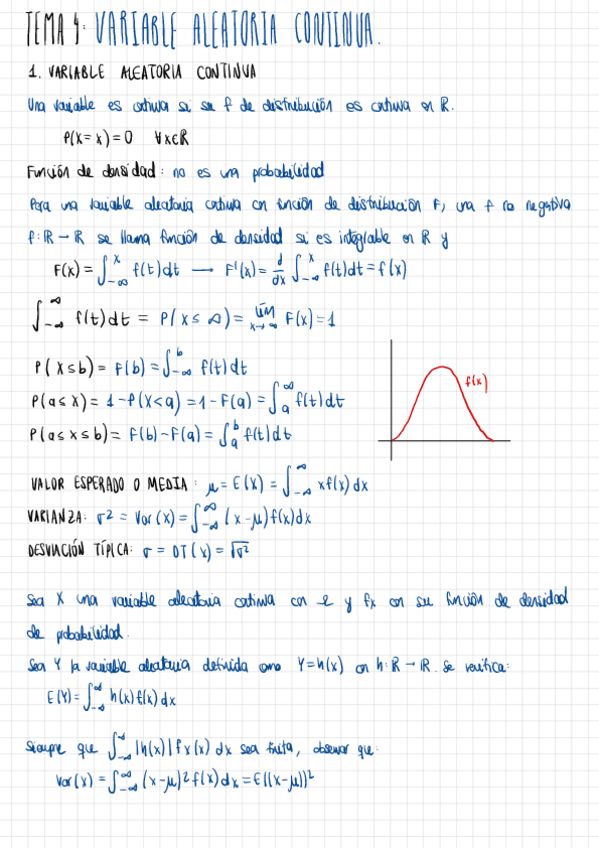 TEMA 4: VARIABLE ALEATORIA CONTINUA.
1. VARIABLE ALEATORIA CONTINUA
Una variable es continua si su f de distribución es continua en ℝ.
P(X=x)=0 ∀x∈ℝ
Función de densidad: no es una probabilidad
Para una variable aleatoria continua con función de distribución F, una f no negativa
f:ℝ→ℝ se llama función de densidad si es integrable en ℝ y
F(x)=∫_{-∞}^{x} f(t)dt → F'(x)=d/dx ∫_{-∞}^{x} f(t)dt=f(x)
∫_{-∞}^{∞} f(t)dt = P(X≤∞)= lím_{x→∞} F(x)=1
P(X≤b)=F(b)=∫_{-∞}^{b} f(t)dt
f(x)
P(a≤X)=1-P(X<a)=1-F(a)=∫_{a}^{∞} f(t)dt
P(a≤X≤b)=F(b)-F(a)=∫_{a}^{b} f(t)dt
VALOR ESPERADO O MEDIA: μ=E(X)=∫_{-∞}^{∞} xf(x)dx
VARIANZA: σ²=Var(X)=∫_{-∞}^{∞} (x-μ)f(x)dx
DESVIACIÓN TÍPICA: σ=DT(X)=√σ²
Sea X una variable aleatoria continua con y fx con su función de densidad
de probabilidad.
Sea Y la variable aleatoria definida como Y=h(x) con h:ℝ→ℝ. Se verifica:
E(Y)=∫_{-∞}^{∞} h(x)f(x)dx
Siempre que ∫_{-∞}^{∞} |h(x)|fx(x)dx sea finita, observar que:
Var(x)=∫_{-∞}^{∞} (x-μ)²f(x)dx=E((x-μ))²